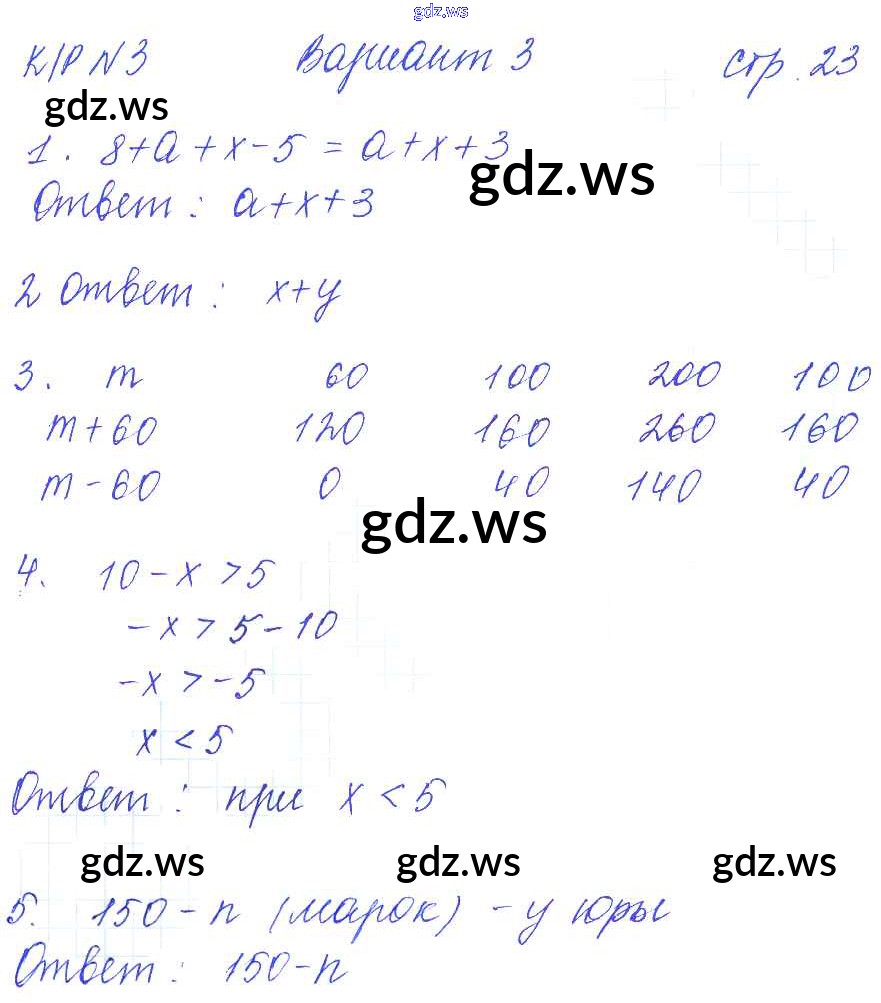 gdz.ws
К/Р N3 Вариант 3 стр. 23
gdz.ws
1. 8+a+x-5 = a+x+3
gdz.ws
Ответ: a+x+3
2 Ответ: x+y
3. m 60 100 200 100
m+60 120 160 260 160
m-60 0 40 140 40
gdz.ws
4. 10-x>5
-x>5-10
-x>-5
x<5
Ответ: при x<5
gdz.ws gdz.ws gdz.ws
5. 150-n (марок) - у Юры
Ответ: 150-n